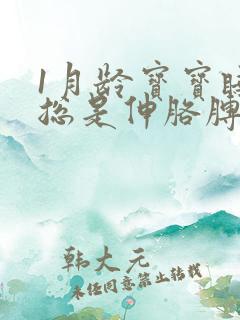 1月龄宝宝睡
总是伸胳膊
韩大元
未经同意禁止转载